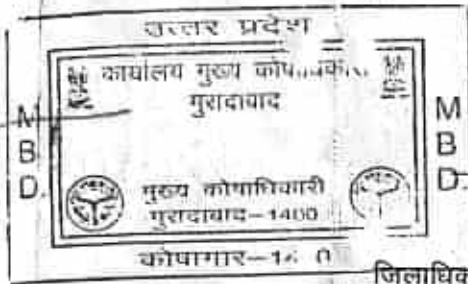 उत्तर प्रदेश
कार्यालय मुख्य
मुरादाबाद
M
B
D.
M
B
D.
मुख्य कोषाधिकारी
मुरादाबाद-1400
कोषागार-14 0
जिलाधिक